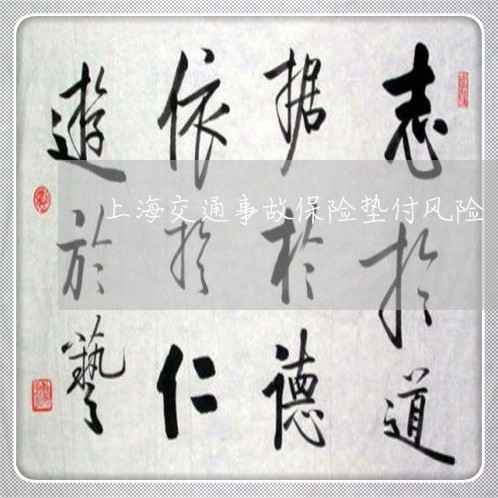 志於道
据於德
依於仁
遊於藝
上海交通事故保险垫付风险